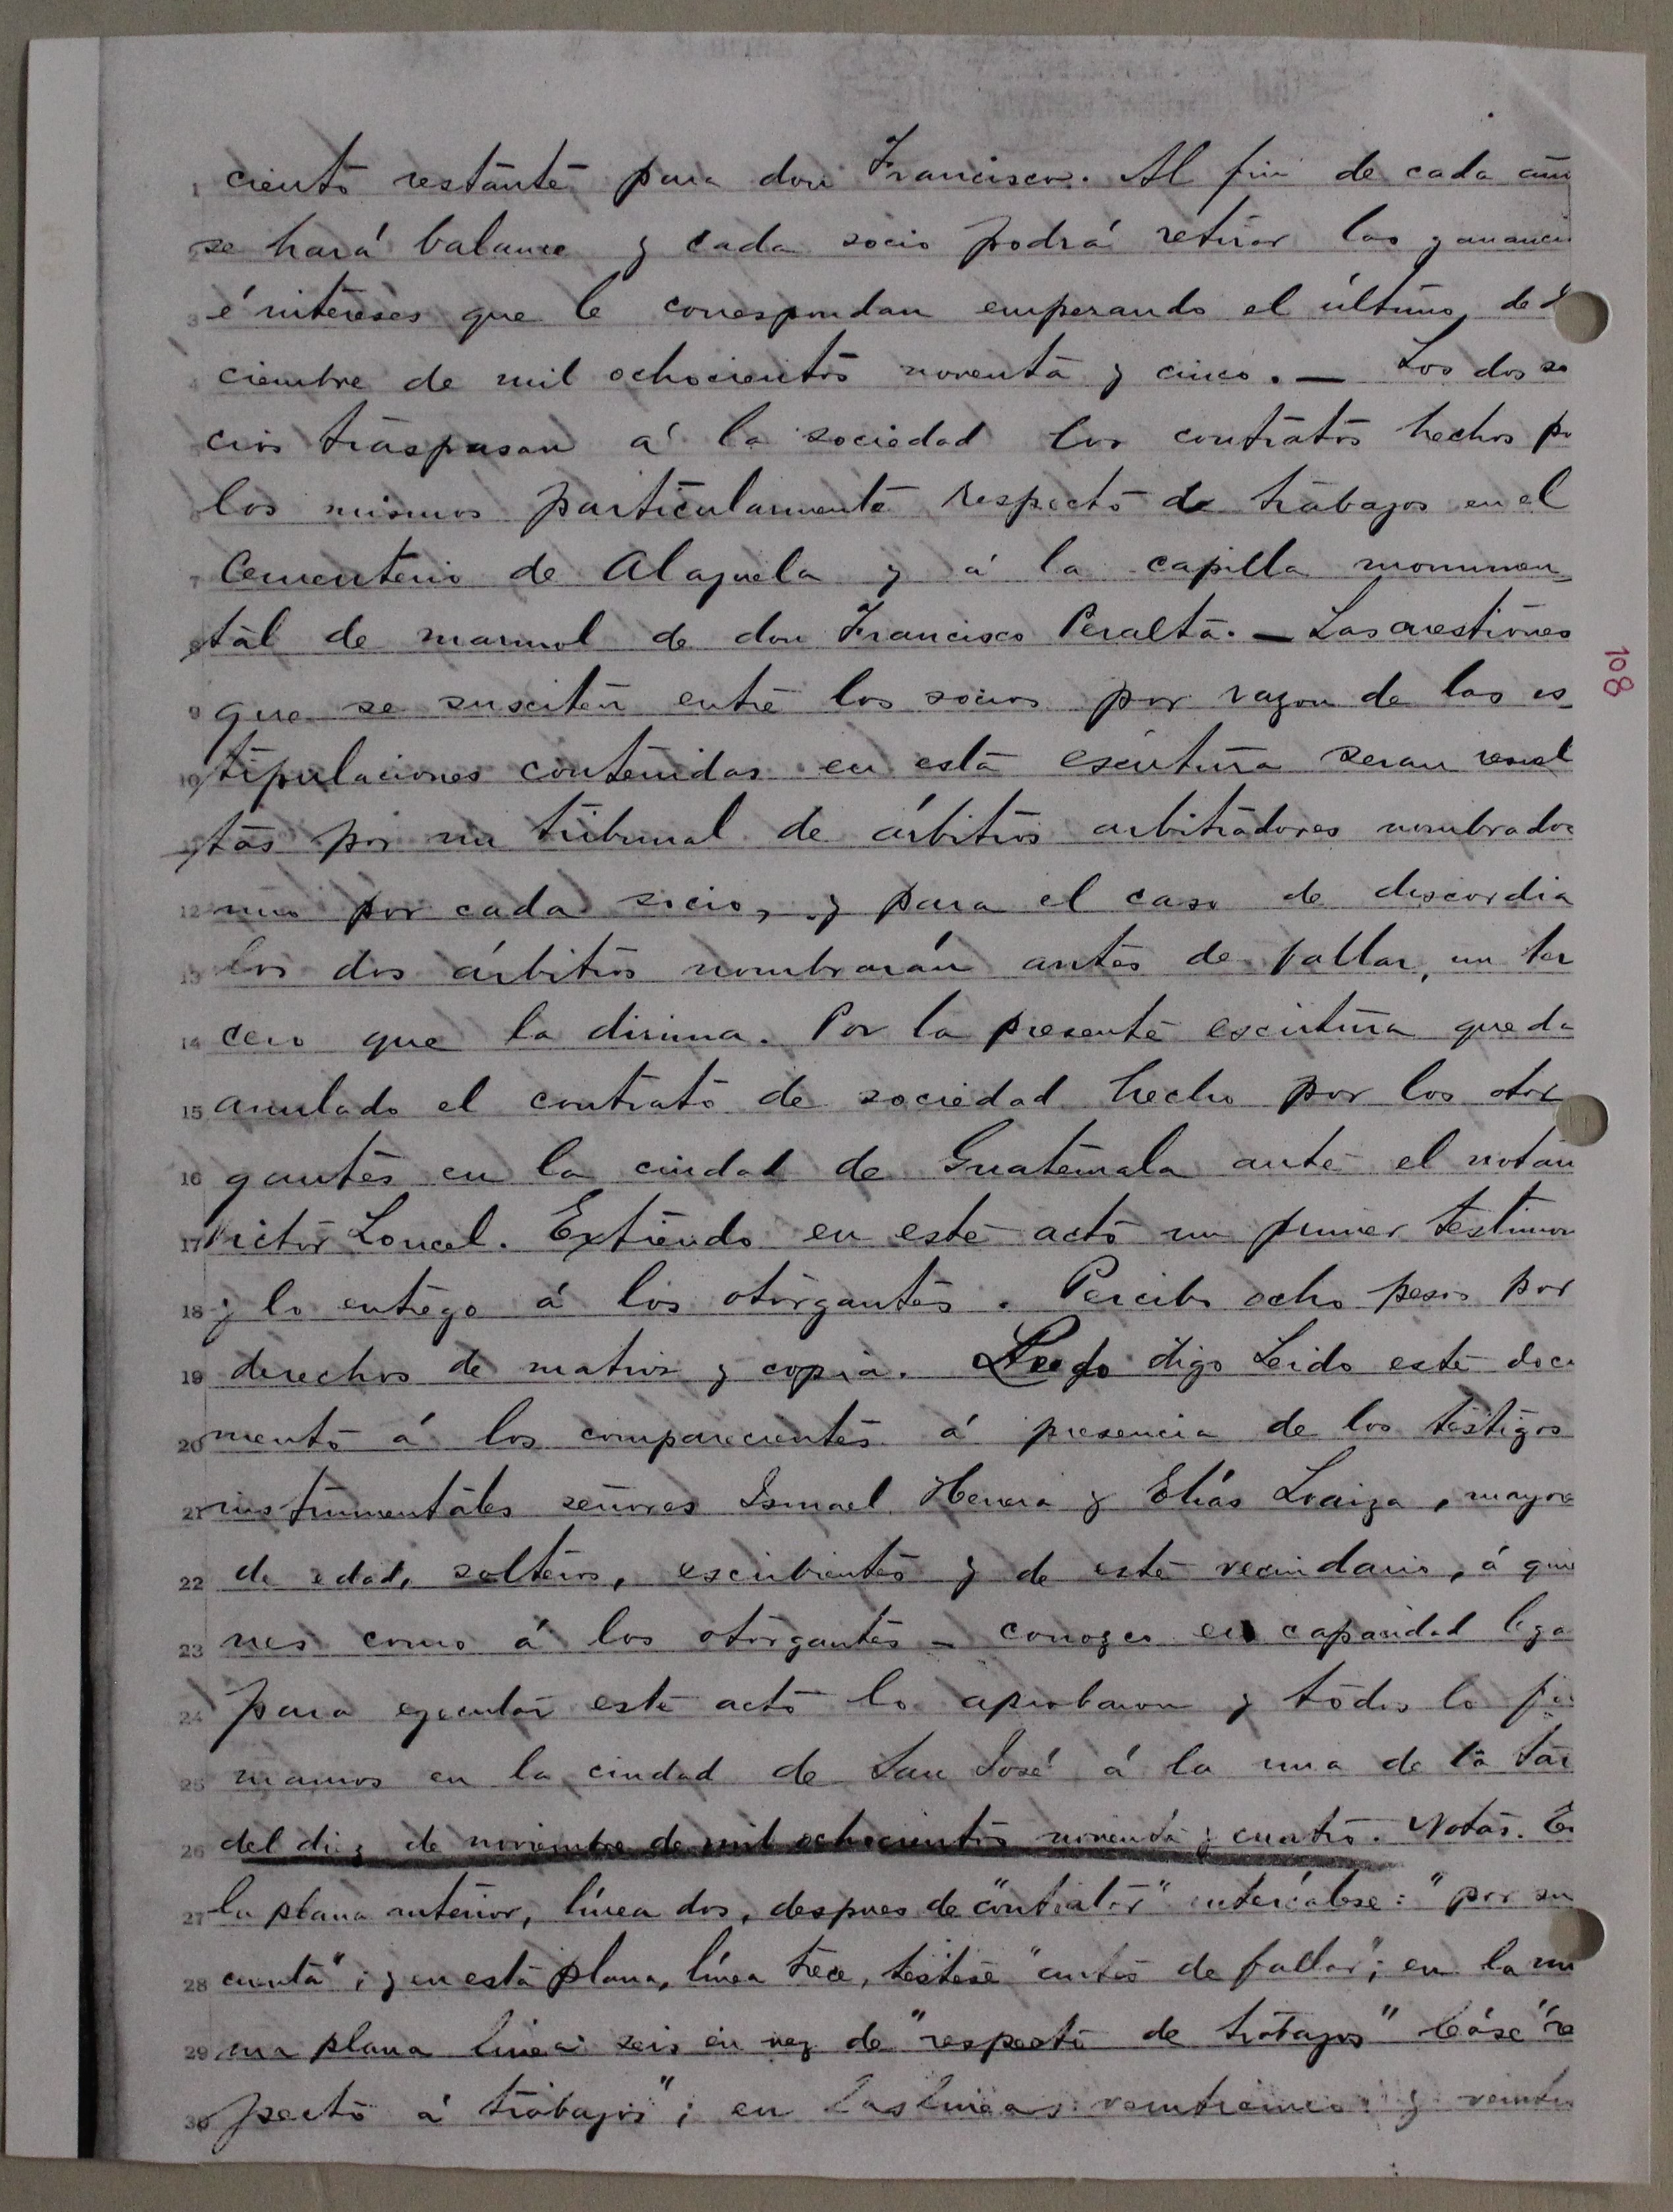 1 ciento restante para don Francisco. Al fin de cada año
2 se hará balance y cada socio podrá retirar las gananci
3 é intereses que le correspondan empezando el último de d
4 ciembre de mil ochocientos noventa y cinco. — Los dos so
cios traspasan á la sociedad los contratos hechos po
los mismos particularmente respecto de trabajos en el
7 Cementerio de Alajuela y á la capilla monumen-
8 tal de marmol de don Francisco Peralta. — Las cuestiones
9 que se susciten entre los socios por razon de las es
10 tipulaciones contenidas en esta escritura seran resuel
tas por un tribunal de árbitros arbitradores nombrados
12 uno por cada socio, y para el caso de discordia
13 los dos árbitros nombrarán antes de fallar, un ter
14 cero que la dirima. Por la presente escritura queda
15 anulado el contrato de sociedad hecho por los otor
16 gantes en la ciudad de Guatemala ante el notari
17 Victor Loucel. Extiendo en este acto un primer testimon
18 y lo entrego á los otorgantes. Percibo ocho pesos por
19 derechos de matriz y copia. digo Leido este docu
20 mento á los comparecientes á presencia de los testigos
21 instrumentales señores Ismael Herrera y Elías Loaiza, mayore
22 de edad, solteros, escribientes y de este vecindario, á quie
23 nes como á los otorgantes - conozco en capacidad lega
24 para ejecutar este acto lo aprobaron y todos lo fir
25 mamos en la ciudad de San José á la una de la tar
26 del diez de noviembre de mil ochocientos noventa y cuatro. Notas. En
27 la plana anterior, línea dos, despues de "contratar" intercálese: "por su
28 cuenta"; y en esta plana, línea trece, téstese "antes de fallar"; en la mis
29 ma plana linea seis en vez de "respecto de trabajos" léase "res
30 pecto á trabajos"; en las lineas veinticinco y veintis
108